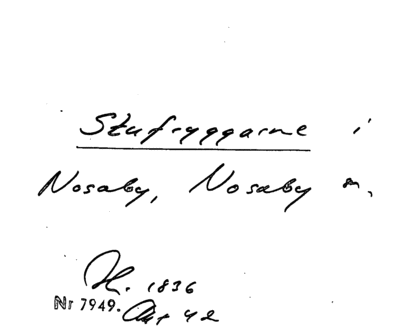 Stufryggarne i
Nosaby, Nosaby m.
H. 1836
Nr 7949. Akt 42